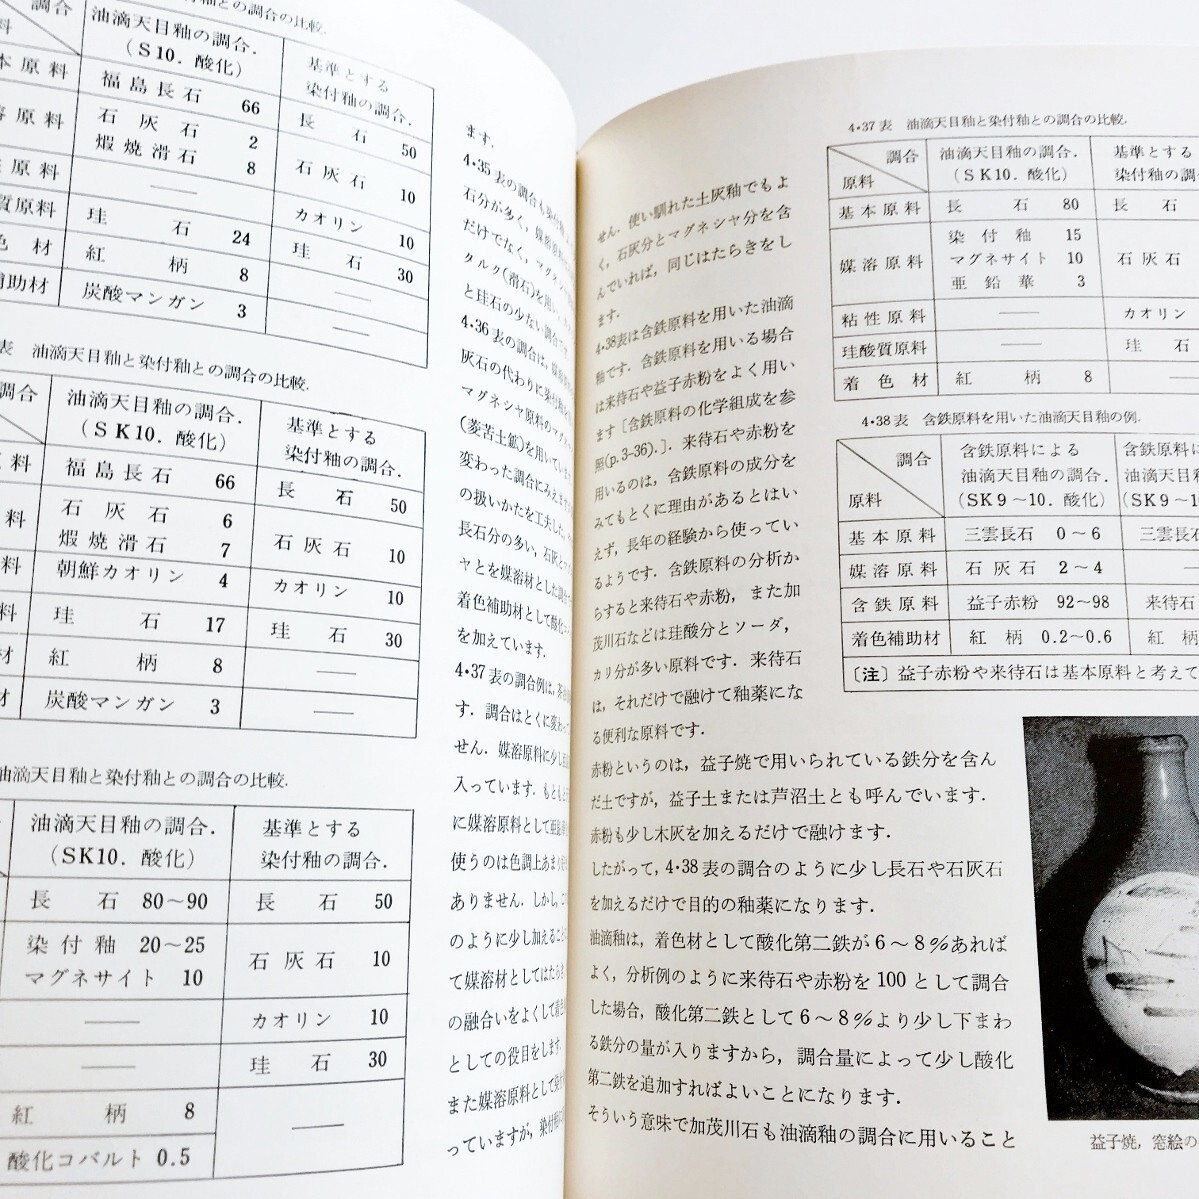 釉との調合の比較.
調合
油滴天目釉の調合.
(SK10. 酸化)
基準とする
染付釉の調合.
本原料
福島長石 66
長石 50
溶原料
石灰石 2
煆焼滑石 8
石灰石 10
原料
カオリン 10
質原料
珪石 24
珪石 30
色材
紅柄 8
補助材
炭酸マンガン 3
表 油滴天目釉と染付釉との調合の比較.
調合
油滴天目釉の調合.
(SK10. 酸化)
基準とする
染付釉の調合.
福島長石 66
長石 50
石灰石 6
煆焼滑石 7
石灰石 10
朝鮮カオリン 4
カオリン 10
珪石 17
珪石 30
紅柄 8
炭酸マンガン 3
油滴天目釉と染付釉との調合の比較.
油滴天目釉の調合.
(SK10. 酸化)
基準とする
染付釉の調合.
長石 80~90
長石 50
染付釉 20~25
マグネサイト 10
石灰石 10
カオリン 10
珪石 30
紅柄 8
酸化コバルト 0.5
ます.
4・35表の調合も染付釉
石分が多く, 媒溶
だけでなく, マグネシ
タルク(滑石)を用い
と珪石の少ない調合です
4・36表の調合は, 媒
灰石の代わりに染付釉を
マグネシヤ原料のマグネ
(菱苦土鉱)を用いていま
変わった調合にみえます
の扱いかたを工夫した
長石分の多い, 石灰とマ
ヤとを媒溶材とした調合
着色補助材として酸化コ
を加えています.
4・37表の調合例は, 茶
す. 調合はとくに変わって
せん. 媒溶原料に少し亜
入っています. もともと
に媒溶原料として亜鉛華
使うのは色調上あまり
ありません. しかし, こ
のように少し加えること
て媒溶材としてはたらき
の融合いをよくして着
としての役目をします.
また媒溶原料として染付
っていますが, 染付釉に
せん. 使い馴れた土灰釉でもよ
く, 石灰分とマグネシヤ分を含
んでいれば, 同じはたらきをし
ます.
4・38表は含鉄原料を用いた油滴
釉です. 含鉄原料を用いる場合
は来待石や益子赤粉をよく用い
ます〔含鉄原料の化学組成を参
照(p.3-36).〕. 来待石や赤粉を
用いるのは, 含鉄原料の成分を
みてもとくに理由があるとはい
えず, 長年の経験から使ってい
るようです. 含鉄原料の分析か
らすると来待石や赤粉, また加
茂川石などは珪酸分とソーダ,
カリ分が多い原料です. 来待石
は, それだけで融けて釉薬にな
る便利な原料です.
赤粉というのは, 益子焼で用いられている鉄分を含ん
だ土ですが, 益子土または芦沼土とも呼んでいます.
赤粉も少し木灰を加えるだけで融けます.
したがって, 4・38表の調合のように少し長石や石灰石
を加えるだけで目的の釉薬になります.
油滴釉は, 着色材として酸化第二鉄が6~8%あれば
よく, 分析例のように来待石や赤粉を100として調合
した場合, 酸化第二鉄として6~8%より少し下まわ
る鉄分の量が入りますから, 調合量によって少し酸化
第二鉄を追加すればよいことになります.
そういう意味で加茂川石も油滴釉の調合に用いること
4・37表 油滴天目釉と染付釉との調合の比較.
調合
原料
油滴天目釉の調合.
(SK10. 酸化)
基準とする
染付釉の調合
基本原料
長石 80
長石
媒溶原料
染付釉 15
マグネサイト 10
亜鉛華 3
石灰石
粘性原料
カオリン
珪酸質原料
珪石
着色材
紅柄 8
4・38表 含鉄原料を用いた油滴天目釉の例.
調合
原料
含鉄原料による
油滴天目釉の調合.
(SK9~10. 酸化)
含鉄原料に
油滴天目釉
(SK9~1
基本原料
三雲長石 0~6
三雲長石
媒溶原料
石灰石 2~4
含鉄原料
益子赤粉 92~98
来待石
着色補助材
紅柄 0.2~0.6
紅柄
〔注〕益子赤粉や来待石は基本原料と考えて
益子焼, 窓絵の